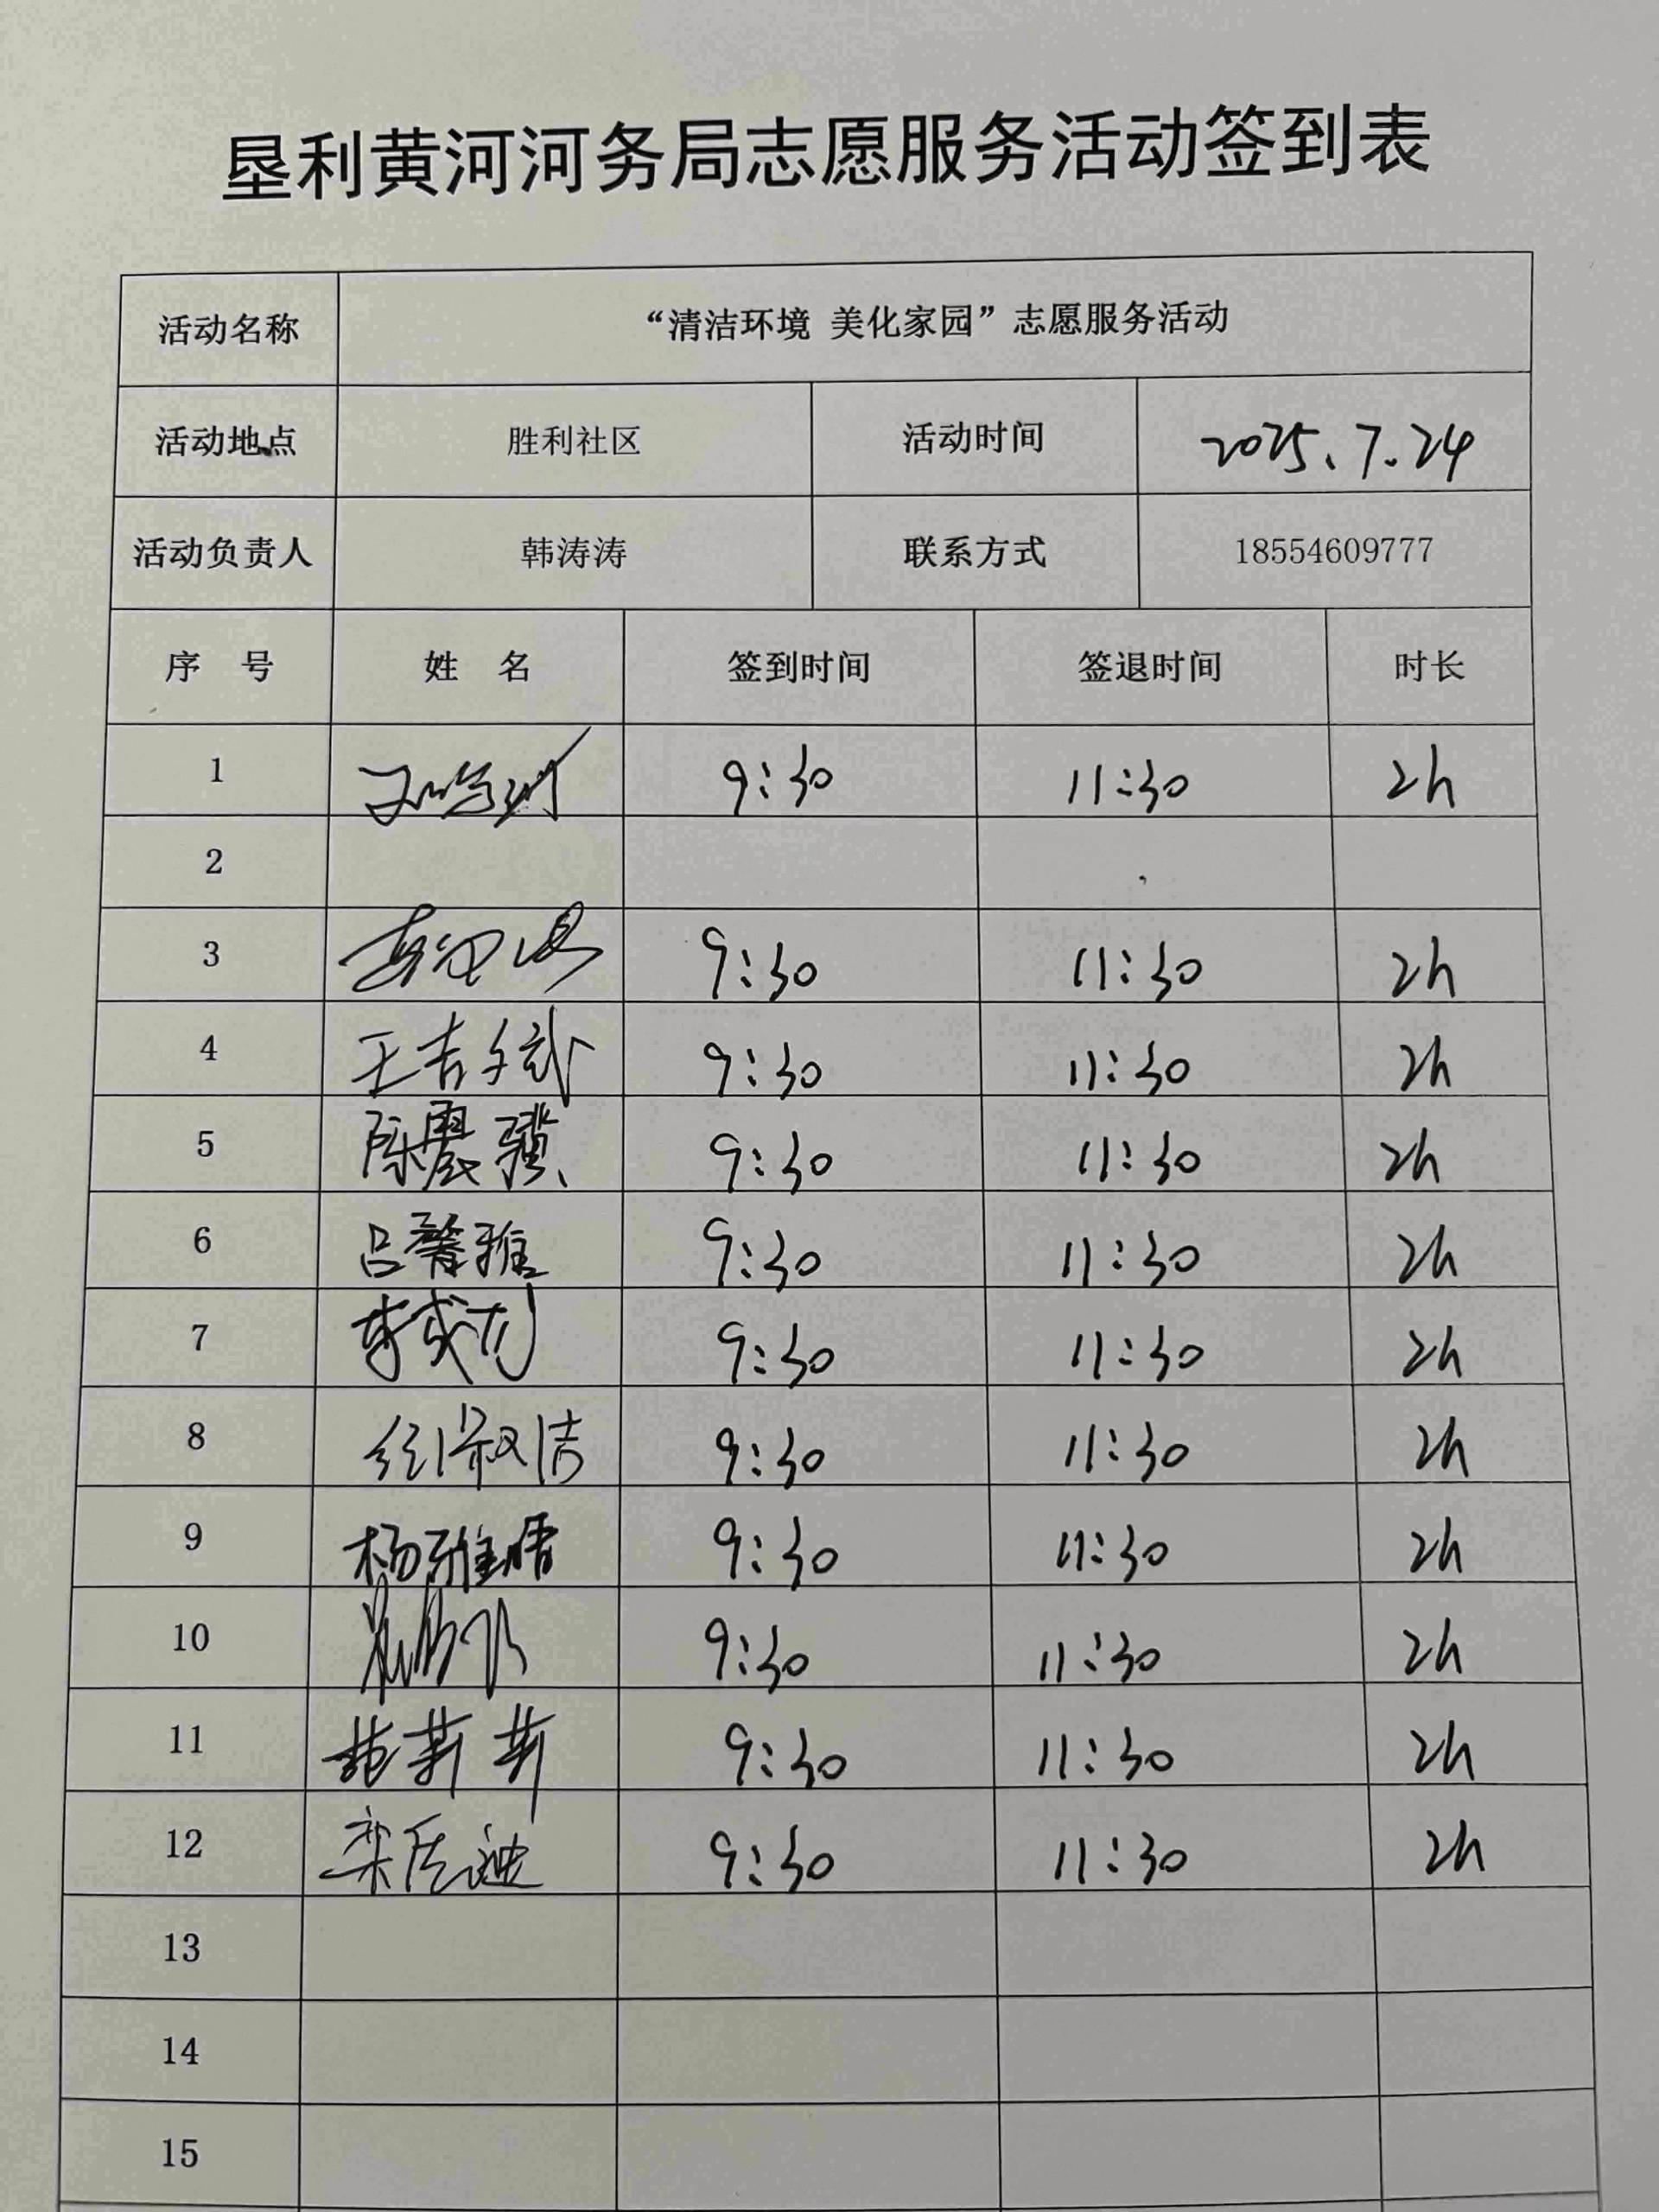 垦利黄河河务局志愿服务活动签到表
活动名称 “清洁环境 美化家园”志愿服务活动
活动地点 胜利社区 活动时间 2025.7.24
活动负责人 韩涛涛 联系方式 18554609777
序 号 姓 名 签到时间 签退时间 时长
1 9:30 11:30 2h
2
3 9:30 11:30 2h
4 王吉 9:30 11:30 2h
5 陈震骥 9:30 11:30 2h
6 吕馨雅 9:30 11:30 2h
7 李成龙 9:30 11:30 2h
8 9:30 11:30 2h
9 杨雅婧 9:30 11:30 2h
10 9:30 11:30 2h
11 9:30 11:30 2h
12 栾 9:30 11:30 2h
13
14
15